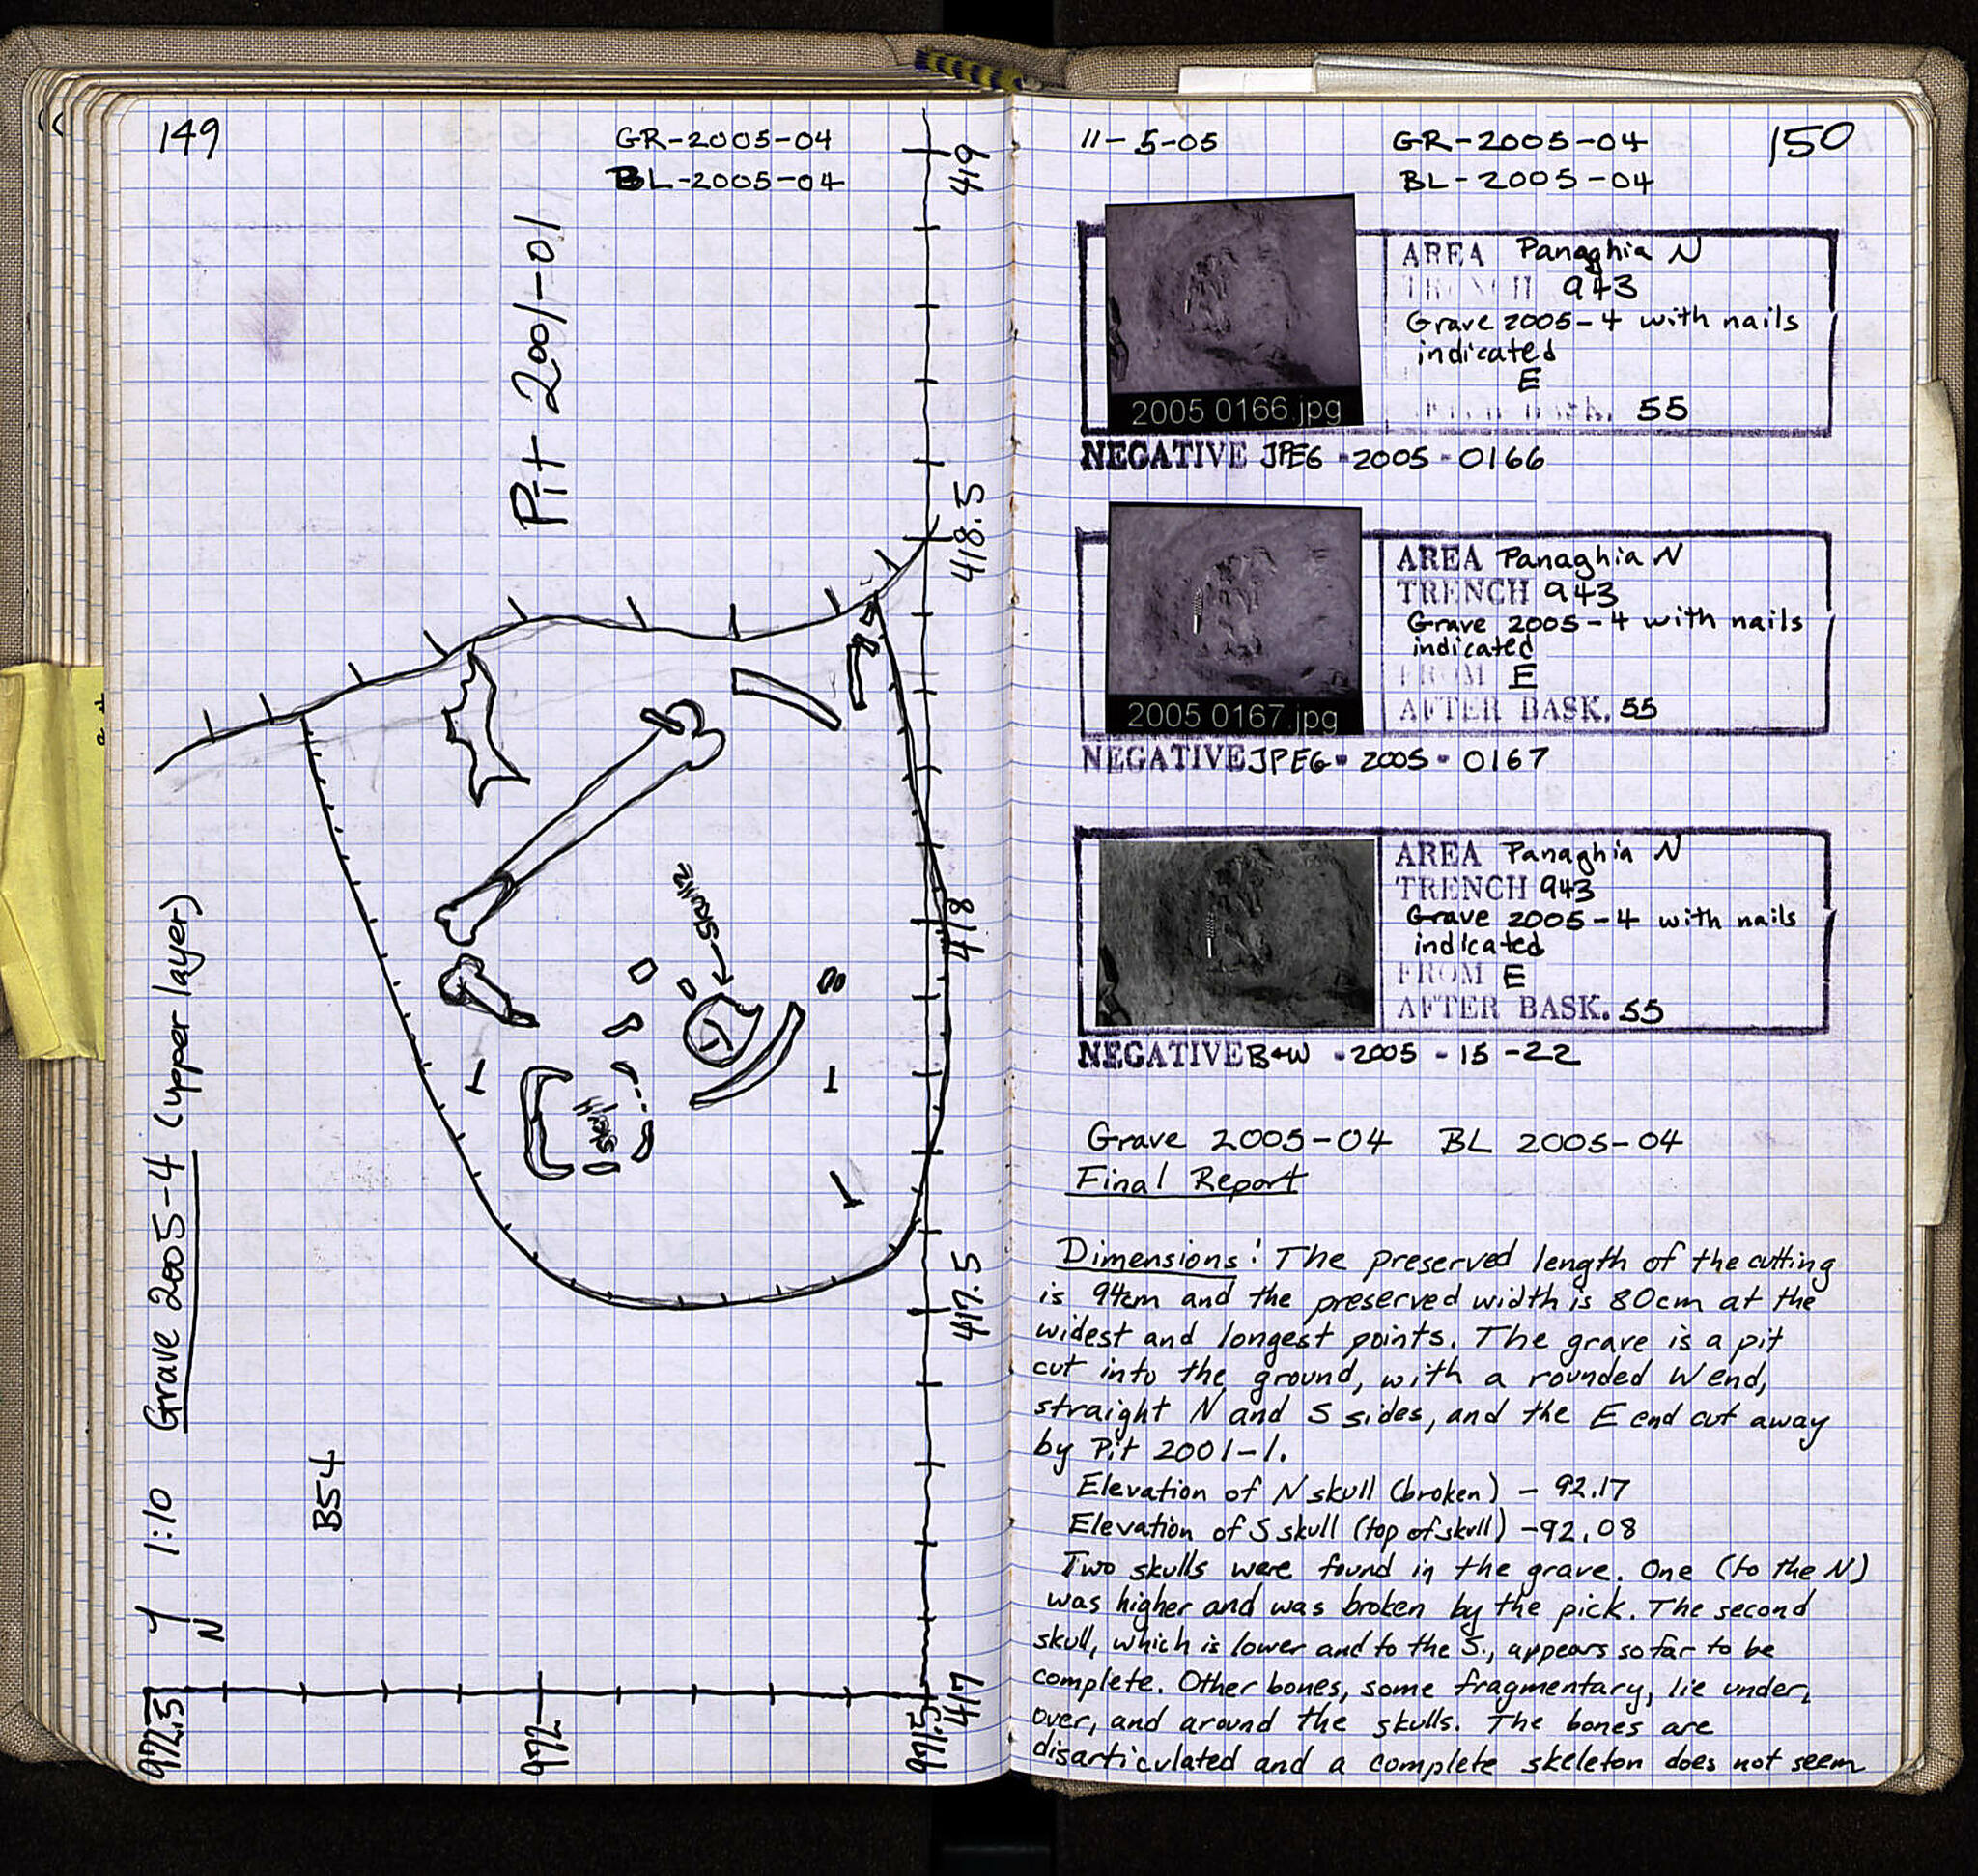 149
GR-2005-04
BL-2005-04
Pit 2001-01
419
418.5
418
417.5
417
Skull 2
Skull 1
Grave 2005-4 (upper layer)
1:10
B54
N
972.5
972
971.5
11-5-05
GR-2005-04
BL-2005-04
150
AREA Panaghia N
TRENCH 943
Grave 2005-4 with nails
indicated
E
AFTER BASK. 55
2005 0166.jpg
NEGATIVE JPEG-2005-0166
AREA Panaghia N
TRENCH 943
Grave 2005-4 with nails
indicated
FROM E
AFTER BASK. 55
2005 0167.jpg
NEGATIVE JPEG-2005-0167
AREA Panaghia N
TRENCH 943
Grave 2005-4 with nails
indicated
FROM E
AFTER BASK. 55
NEGATIVE B+W-2005-15-22
Grave 2005-04 BL 2005-04
Final Report
Dimensions: The preserved length of the cutting
is 94cm and the preserved width is 80cm at the
widest and longest points. The grave is a pit
cut into the ground, with a rounded W end,
straight N and S sides, and the E end cut away
by Pit 2001-1.
Elevation of N skull (broken) - 92.17
Elevation of S skull (top of skull) - 92.08
Two skulls were found in the grave. One (to the N)
was higher and was broken by the pick. The second
skull, which is lower and to the S., appears so far to be
complete. Other bones, some fragmentary, lie under,
over, and around the skulls. The bones are
disarticulated and a complete skeleton does not seem